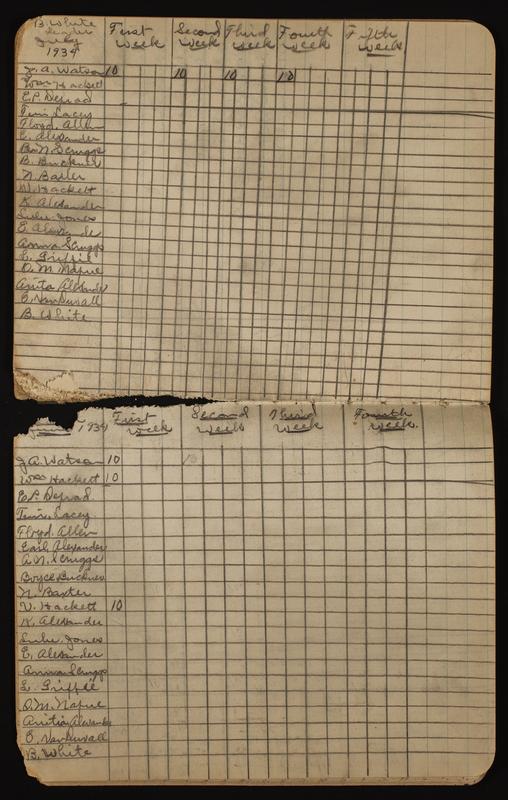 B. White
Leader
July
1934
First Week Second Week Third week Fourth week Fifth week
J. A. Watson 10 10 10 10
Wm Hackett
E.P. Deprad
Tim Lacey
Floyd. Allen
E. Alexander
B. N. Scruggs
B. Buckner
N. Baxter
W. Hackett
K. Alexander
Lulu Jones
E. Alexander
Anna Scruggs
L. Griffie
O. M. Napue
Anita Alexander
E. VanDuvall
B. White
1934 First Week Second Week Third Week Fourth Week.
J. A. Watson 10
Wm Hackett 10
E.P. Deprad
Tim. Lacey
Floyd. Allen
Earl. Alexander
A. N. Scruggs
Boyce Buckner
N. Baxter
V. Hackett 10
K. Alexander
Lulu. Jones
E. Alexander
Anna Scruggs
L. Griffie
O. M. Napue
Anitia Alexander
E. VanDuvall
B. White